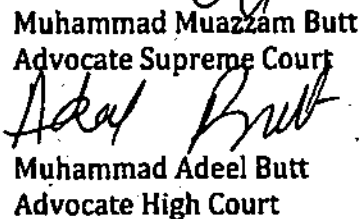 Muhammad Muazzam Butt
Advocate Supreme Court
Adeel Butt
Muhammad Adeel Butt
Advocate High Court